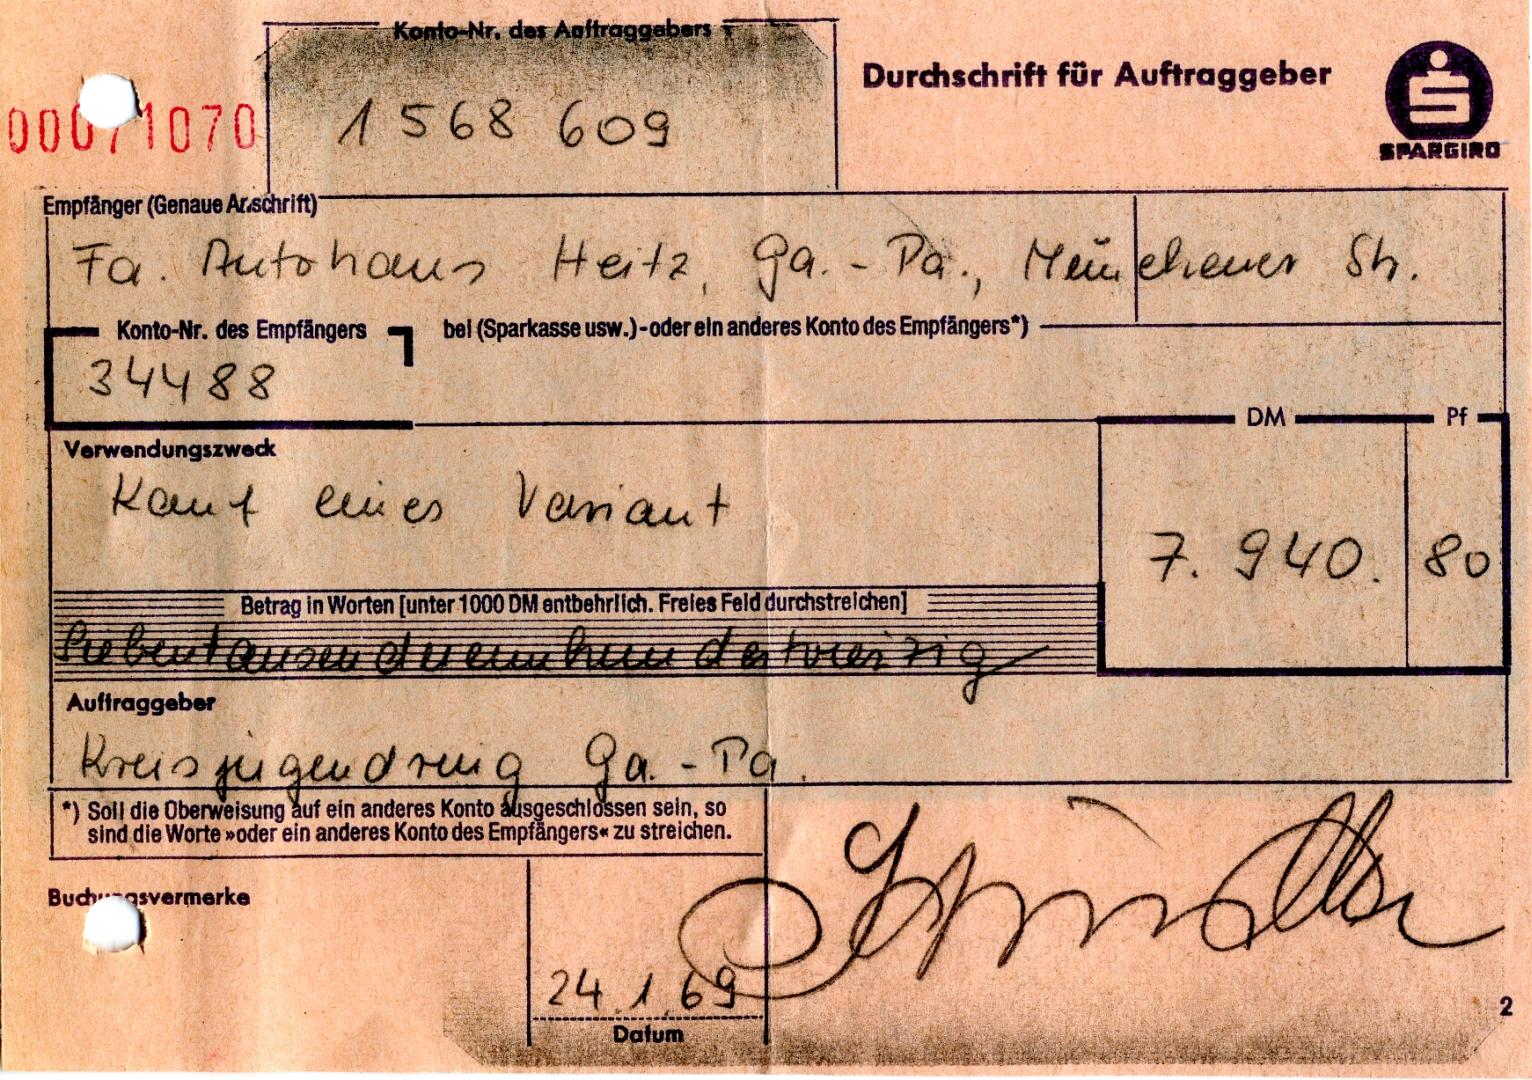 Konto-Nr. des Auftraggebers
Durchschrift für Auftraggeber
00071070
1 568 609
SPARGIRO
Empfänger (Genaue Anschrift)
Fa. Autohaus Heitz, Ga.-Pa., Münchener Str.
Konto-Nr. des Empfängers
bei (Sparkasse usw.)-oder ein anderes Konto des Empfängers*)
34488
DM Pf
Verwendungszweck
Kauf eines Variant
7. 940. 80
Betrag in Worten [unter 1000 DM entbehrlich. Freies Feld durchstreichen]
Siebentausendneunhundertvierzig
Auftraggeber
Kreisjugendring Ga.-Pa.
*) Soll die Überweisung auf ein anderes Konto ausgeschlossen sein, so
sind die Worte »oder ein anderes Konto des Empfängers« zu streichen.
Buchungsvermerke
24.1.69
Datum
2